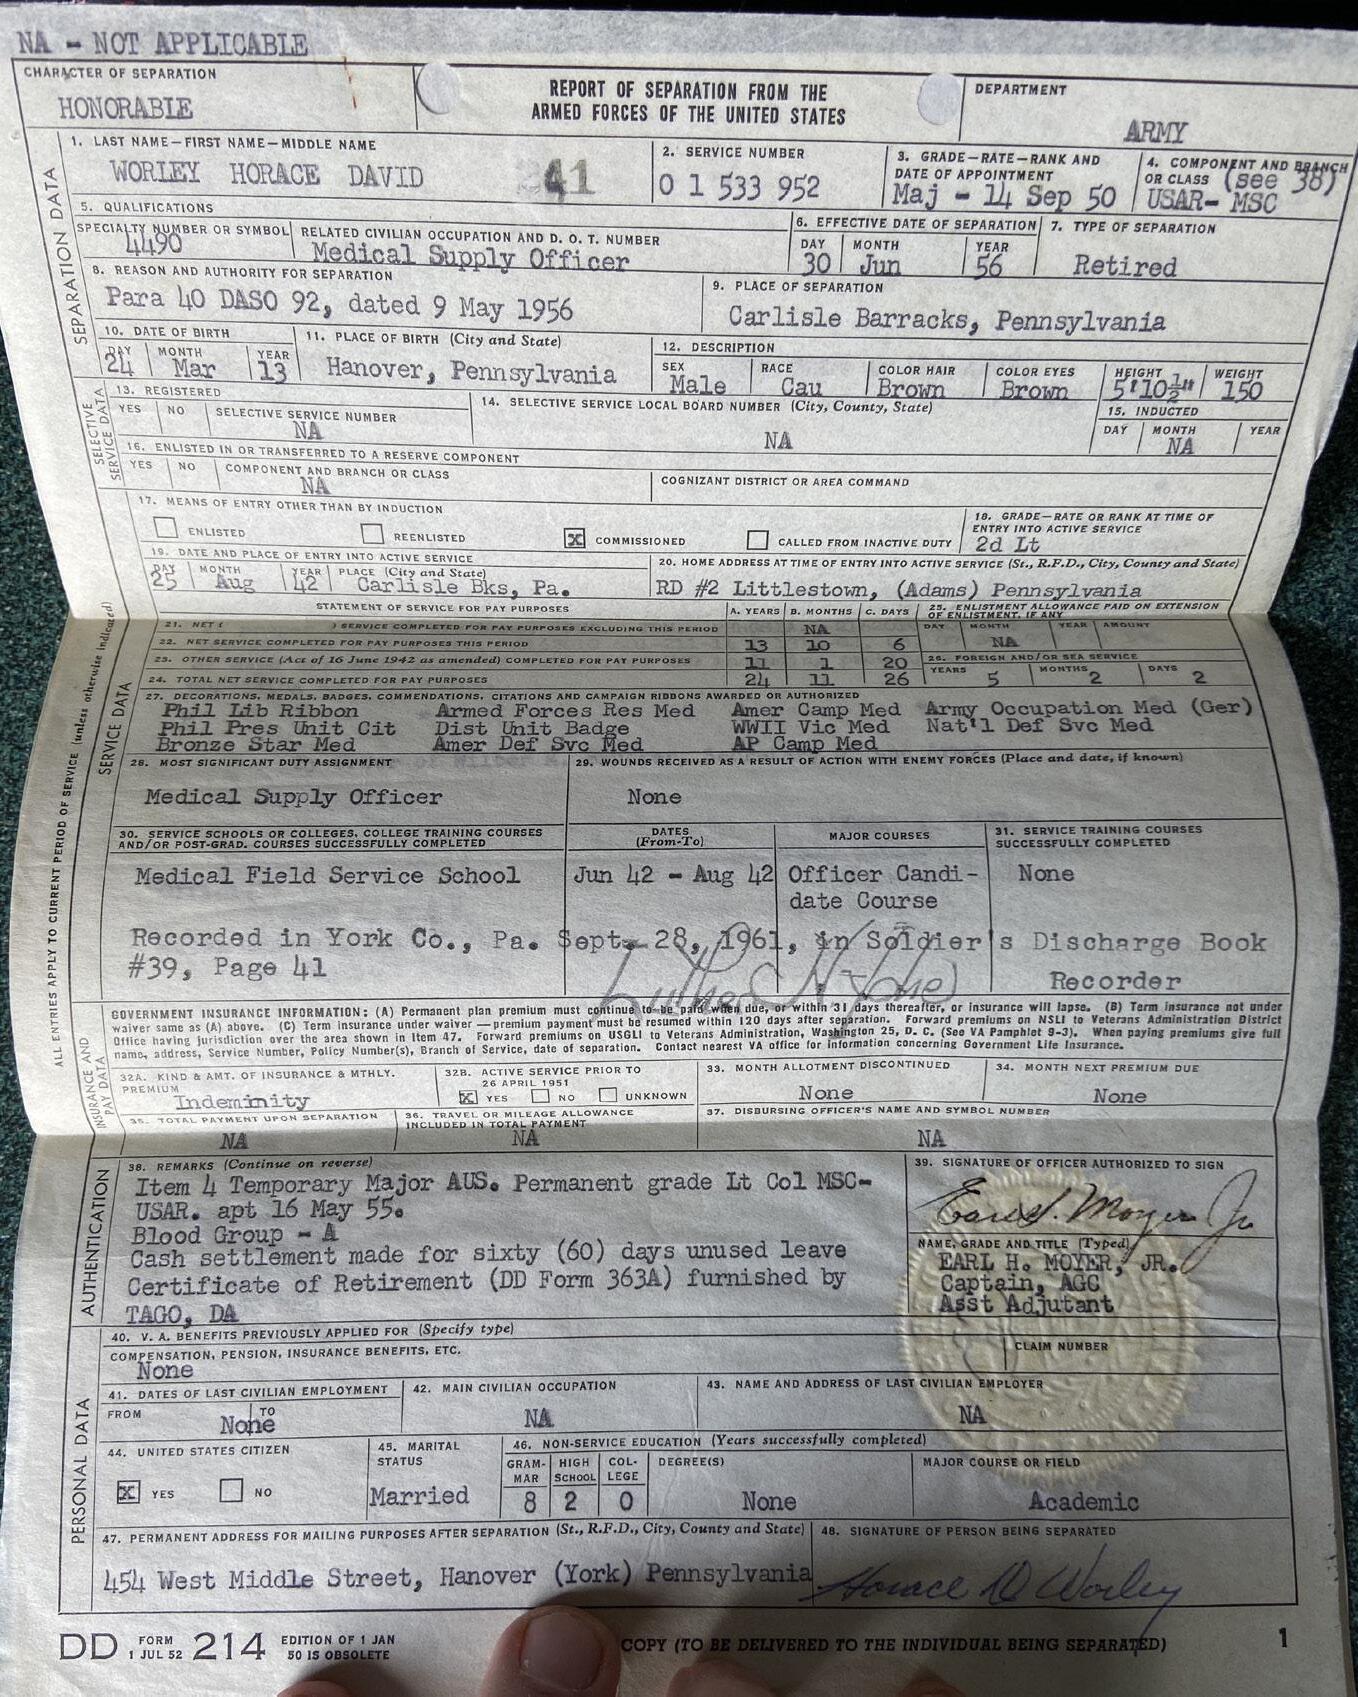 NA - NOT APPLICABLE
CHARACTER OF SEPARATION
HONORABLE
REPORT OF SEPARATION FROM THE
ARMED FORCES OF THE UNITED STATES
DEPARTMENT
ARMY
SEPARATION DATA
1. LAST NAME—FIRST NAME—MIDDLE NAME
WORLEY HORACE DAVID
41
2. SERVICE NUMBER
O 1 533 952
3. GRADE—RATE—RANK AND
DATE OF APPOINTMENT
Maj - 14 Sep 50
4. COMPONENT AND BRANCH
OR CLASS (see 38)
USAR- MSC
5. QUALIFICATIONS
SPECIALTY NUMBER OR SYMBOL
4490
RELATED CIVILIAN OCCUPATION AND D. O. T. NUMBER
Medical Supply Officer
6. EFFECTIVE DATE OF SEPARATION
DAY MONTH YEAR
30 Jun 56
7. TYPE OF SEPARATION
Retired
8. REASON AND AUTHORITY FOR SEPARATION
Para 40 DASO 92, dated 9 May 1956
9. PLACE OF SEPARATION
Carlisle Barracks, Pennsylvania
10. DATE OF BIRTH
DAY MONTH YEAR
24 Mar 13
11. PLACE OF BIRTH (City and State)
Hanover, Pennsylvania
12. DESCRIPTION
SEX RACE COLOR HAIR COLOR EYES HEIGHT WEIGHT
Male Cau Brown Brown 5'10½" 150
SELECTIVE SERVICE DATA
13. REGISTERED
YES NO SELECTIVE SERVICE NUMBER
NA
14. SELECTIVE SERVICE LOCAL BOARD NUMBER (City, County, State)
NA
15. INDUCTED
DAY MONTH YEAR
NA
16. ENLISTED IN OR TRANSFERRED TO A RESERVE COMPONENT
YES NO COMPONENT AND BRANCH OR CLASS
NA
COGNIZANT DISTRICT OR AREA COMMAND
ALL ENTRIES APPLY TO CURRENT PERIOD OF SERVICE (unless otherwise indicated)
SERVICE DATA
17. MEANS OF ENTRY OTHER THAN BY INDUCTION
ENLISTED REENLISTED X COMMISSIONED CALLED FROM INACTIVE DUTY
18. GRADE—RATE OR RANK AT TIME OF
ENTRY INTO ACTIVE SERVICE
2d Lt
19. DATE AND PLACE OF ENTRY INTO ACTIVE SERVICE
DAY MONTH YEAR PLACE (City and State)
25 Aug 42 Carlisle Bks, Pa.
20. HOME ADDRESS AT TIME OF ENTRY INTO ACTIVE SERVICE (St., R.F.D., City, County and State)
RD #2 Littlestown, (Adams) Pennsylvania
STATEMENT OF SERVICE FOR PAY PURPOSES
A. YEARS B. MONTHS C. DAYS
21. NET ( ) SERVICE COMPLETED FOR PAY PURPOSES EXCLUDING THIS PERIOD
NA
22. NET SERVICE COMPLETED FOR PAY PURPOSES THIS PERIOD
13 10 6
23. OTHER SERVICE (Act of 16 June 1942 as amended) COMPLETED FOR PAY PURPOSES
11 1 20
24. TOTAL NET SERVICE COMPLETED FOR PAY PURPOSES
24 11 26
25. ENLISTMENT ALLOWANCE PAID ON EXTENSION
OF ENLISTMENT, IF ANY
DAY MONTH YEAR AMOUNT
NA
26. FOREIGN AND/OR SEA SERVICE
YEARS MONTHS DAYS
5 2 2
27. DECORATIONS, MEDALS, BADGES, COMMENDATIONS, CITATIONS AND CAMPAIGN RIBBONS AWARDED OR AUTHORIZED
Phil Lib Ribbon Armed Forces Res Med Amer Camp Med Army Occupation Med (Ger)
Phil Pres Unit Cit Dist Unit Badge WWII Vic Med Nat'l Def Svc Med
Bronze Star Med Amer Def Svc Med AP Camp Med
28. MOST SIGNIFICANT DUTY ASSIGNMENT
Medical Supply Officer
29. WOUNDS RECEIVED AS A RESULT OF ACTION WITH ENEMY FORCES (Place and date, if known)
None
30. SERVICE SCHOOLS OR COLLEGES, COLLEGE TRAINING COURSES
AND/OR POST-GRAD. COURSES SUCCESSFULLY COMPLETED
Medical Field Service School
DATES
(From-To)
Jun 42 - Aug 42
MAJOR COURSES
Officer Candi-
date Course
31. SERVICE TRAINING COURSES
SUCCESSFULLY COMPLETED
None
Recorded in York Co., Pa. Sept. 28, 1961, in Soldier's Discharge Book
#39, Page 41
Recorder
INSURANCE AND PAY DATA
GOVERNMENT INSURANCE INFORMATION: (A) Permanent plan premium must continue to be paid when due, or within 31 days thereafter, or insurance will lapse. (B) Term insurance not under
waiver same as (A) above. (C) Term insurance under waiver—premium payment must be resumed within 120 days after separation. Forward premiums on NSLI to Veterans Administration District
Office having jurisdiction over the area shown in Item 47. Forward premiums on USGLI to Veterans Administration, Washington 25, D. C. (See VA Pamphlet 9-3). When paying premiums give full
name, address, Service Number, Policy Number(s), Branch of Service, date of separation. Contact nearest VA office for information concerning Government Life Insurance.
32A. KIND & AMT. OF INSURANCE & MTHLY.
PREMIUM
Indeminity
32B. ACTIVE SERVICE PRIOR TO
26 APRIL 1951
X YES NO UNKNOWN
33. MONTH ALLOTMENT DISCONTINUED
None
34. MONTH NEXT PREMIUM DUE
None
35. TOTAL PAYMENT UPON SEPARATION
NA
36. TRAVEL OR MILEAGE ALLOWANCE
INCLUDED IN TOTAL PAYMENT
NA
37. DISBURSING OFFICER'S NAME AND SYMBOL NUMBER
NA
AUTHENTICATION
38. REMARKS (Continue on reverse)
Item 4 Temporary Major AUS. Permanent grade Lt Col MSC-
USAR. apt 16 May 55.
Blood Group - A
Cash settlement made for sixty (60) days unused leave
Certificate of Retirement (DD Form 363A) furnished by
TAGO, DA
39. SIGNATURE OF OFFICER AUTHORIZED TO SIGN
Earl H. Moyer Jr
NAME, GRADE AND TITLE (Typed)
EARL H. MOYER, JR.
Captain, AGC
Asst Adjutant
PERSONAL DATA
40. V. A. BENEFITS PREVIOUSLY APPLIED FOR (Specify type)
COMPENSATION, PENSION, INSURANCE BENEFITS, ETC.
None
CLAIM NUMBER
41. DATES OF LAST CIVILIAN EMPLOYMENT
FROM TO
None
42. MAIN CIVILIAN OCCUPATION
NA
43. NAME AND ADDRESS OF LAST CIVILIAN EMPLOYER
NA
44. UNITED STATES CITIZEN
X YES NO
45. MARITAL
STATUS
Married
46. NON-SERVICE EDUCATION (Years successfully completed)
GRAM-
MAR
8
HIGH
SCHOOL
2
COL-
LEGE
0
DEGREE(S)
None
MAJOR COURSE OR FIELD
Academic
47. PERMANENT ADDRESS FOR MAILING PURPOSES AFTER SEPARATION (St., R.F.D., City, County and State)
454 West Middle Street, Hanover (York) Pennsylvania
48. SIGNATURE OF PERSON BEING SEPARATED
Horace D Worley
DD FORM 1 JUL 52 214 EDITION OF 1 JAN
50 IS OBSOLETE
COPY (TO BE DELIVERED TO THE INDIVIDUAL BEING SEPARATED)
1